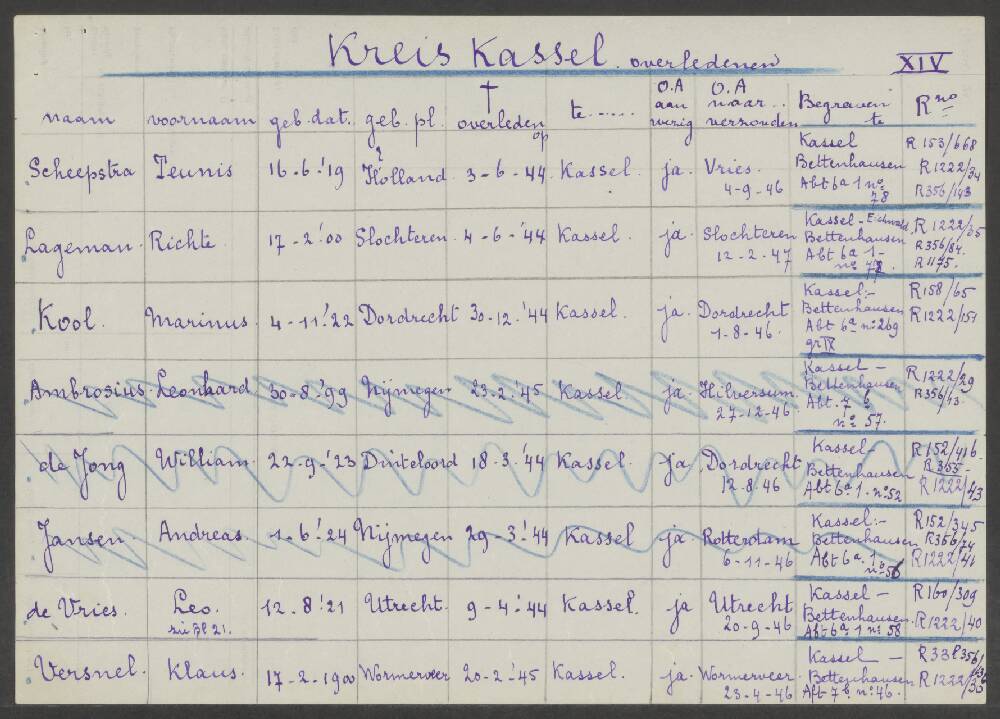 Kreis Kassel. overledenen XIV
naam voornaam geb. dat. geb. pl. † overleden op te...... O.A aan wezig O.A naar.. verzonden Begraven te R no
Scheepstra Teunis 16-6-'19 ? Holland 3-6-'44 Kassel. ja. Vries. 4-9-46 Kassel Bettenhausen Abt 6a 1 no 78 R 153/668 R 1222/34 R 356/143
Lageman. Richte 17-2-'00 Slochteren. 4-6-'44 Kassel. ja. Slochteren 12-2-47 Kassel- Bettenhausen Abt 6a 1- no R 1222/35 R 356/84. R 1175.
Kool. Marinus. 4-11-'22 Dordrecht 30-12-'44 Kassel. ja. Dordrecht 1-8-46. Kassel:- Bettenhausen Abt 6a no 269 gr IX R 158/65 R 1222/151
Ambrosius. Leonhard 30-8-'99 Nijmegen 23-2-'45 Kassel ja. Hilversum. 27-12-46 Kassel- Bettenhausen Abt. 7 b no 57. R 1222/29 R 356/13
de Jong William. 22-9-'23 Dinteloord 18-3-'44 Kassel. ja Dordrecht 12-8-46 Kassel- Bettenhausen Abt 6a 1. no 52 R 152/416. R 355- R 1222/43
Jansen. Andreas. 1-6-'24 Nijmegen 29-3-'44 Kassel ja Rotterdam 6-11-46 Kassel:- Bettenhausen Abt 6a. 1. no 56 R 152/345 R 356/74 R 1222/41
de Vries. Leo. zie Bl 21. 12-8-'21 Utrecht. 9-4-'44 Kassel. ja Utrecht 20-9-46 Kassel- Bettenhausen. Abt 6a 1 no 58 R 160/309 R 1222/40
Versnel. Klaus. 17-2-1900 Wormerveer 20-2-'45 Kassel. ja. Wormerveer 23-4-46 Kassel- Bettenhausen Abt 7 b no 46. R 1222/30